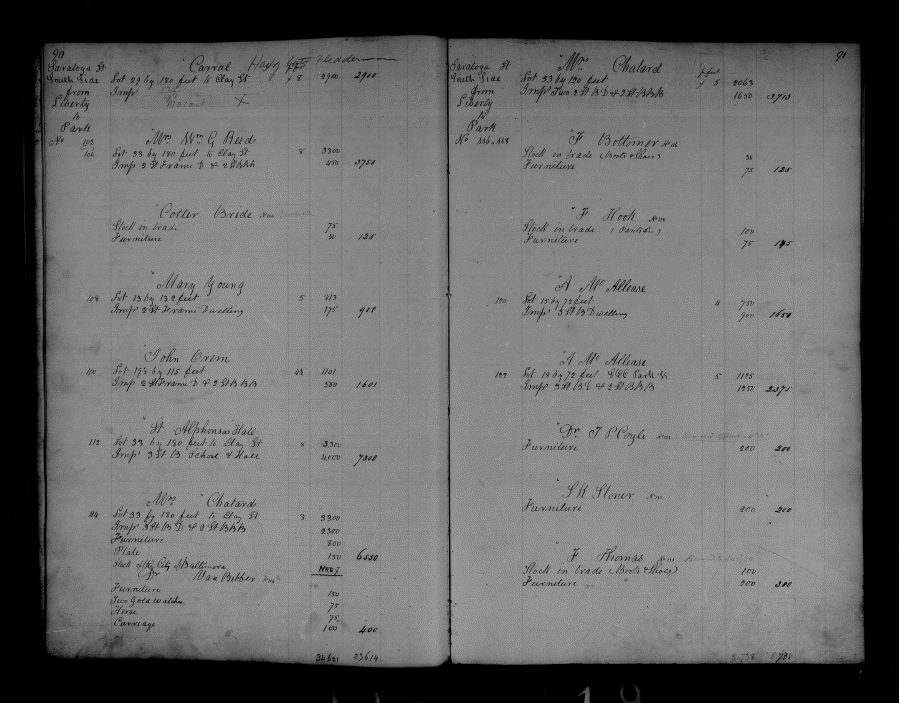 90
Saratoga St
South Side
from
Liberty
to
Park
No 102
" Carral
Lot 29 by 180 feet to Clay St 8 2900 2900
Imps
Vacant X
" Mrs Wm G Reed
106 Lot 33 by 180 feet to Clay St 8 3300
Imps 2 St Frame D & 2 St BBB 450 3750
" Cotter Bride
Stock in trade 75
Furniture 50 125
" Mary Young
108 Lot 13 by 132 feet 5 813
Imps 2 St Frame Dwelling 175 988
" John Orem
110 Lot 17½ by 115 feet 1101
Imps 2 St Frame D & 2 St B B B 500 1601
" St Alphonsas Hall
112 Lot 33 by 180 feet to Clay St 8 3300
Imps 3 St B School & Hall 4000 7300
" Mrs " Chatard
114 Lot 33 by 180 feet to Clay St 8 3300
Imps 3 St B D & 2 St BBB 2300
Furniture 800
Plate 150 6550
Stock of the City of Baltimore
" Dr Van Bibber
Furniture 150
Two Gold Watches 75
Horse 75
Carriage 100 400
23614
91
Saratoga St
South Side
from
Liberty
to
Park
No 116-118
" Mrs Chatard
Lot 33 by 120 feet 5 2063
Imps Two 2 St B D & 2 St BBB 1650 3713
" F Bottomer
Stock in trade (Boots & Shoes) 50
Furniture 75 125
" F Hook
Stock in trade 100
Furniture 75 175
" A Mc Allease
120 Lot 15 by 72 feet 4 750
Imps 3 St B Dwelling 900 1650
" A Mc Allease
122 Lot 18 by 72 feet Park St 5 1125
Imps 3 St B D & 2 St BBB 1250 2375
" Dr T P Coyle
Furniture 200 200
" S K Stoner
Furniture 200 200
" F Thomas
Stock in trade (Boots & Shoes) 100
Furniture 200 300
8738 8738
19